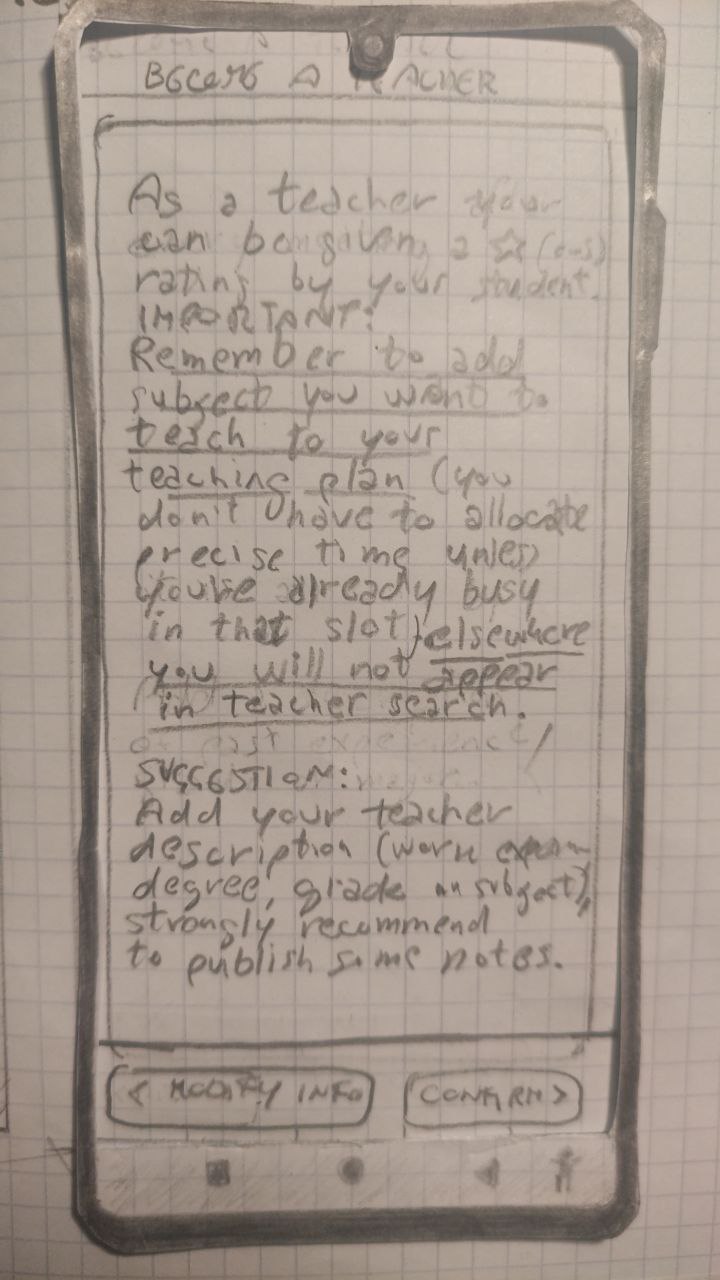 BECOME A TEACHER
As a teacher you
can be given a ☆ (0-5)
rating by your student.
IMPORTANT:
Remember to add
subject you want to
teach to your
teaching plan (you
don't have to allocate
precise time unless
you're already busy
in that slot) elsewhere
you will not appear
in teacher search.
SUGGESTION:
Add your teacher
description (work
degree, grade on subject),
strongly recommend
to publish some notes.
< MODIFY INFO
CONFIRM >